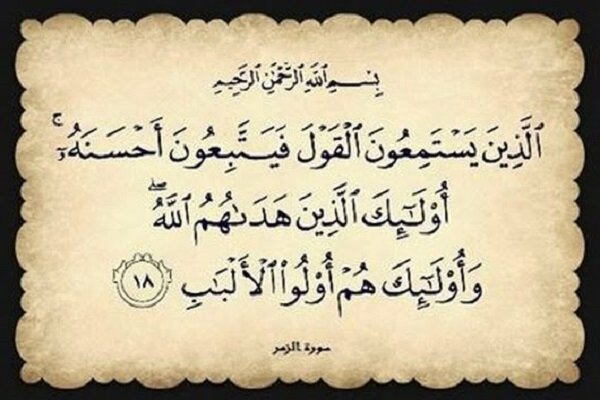 بِسْمِ ٱللَّهِ ٱلرَّحْمَٰنِ ٱلرَّحِيمِ
ٱلَّذِينَ يَسْتَمِعُونَ ٱلْقَوْلَ فَيَتَّبِعُونَ أَحْسَنَهُۥٓ ۚ
أُو۟لَٰٓئِكَ ٱلَّذِينَ هَدَىٰهُمُ ٱللَّهُ ۖ
وَأُو۟لَٰٓئِكَ هُمْ أُو۟لُوا۟ ٱلْأَلْبَٰبِ ١٨
سورة الزمر